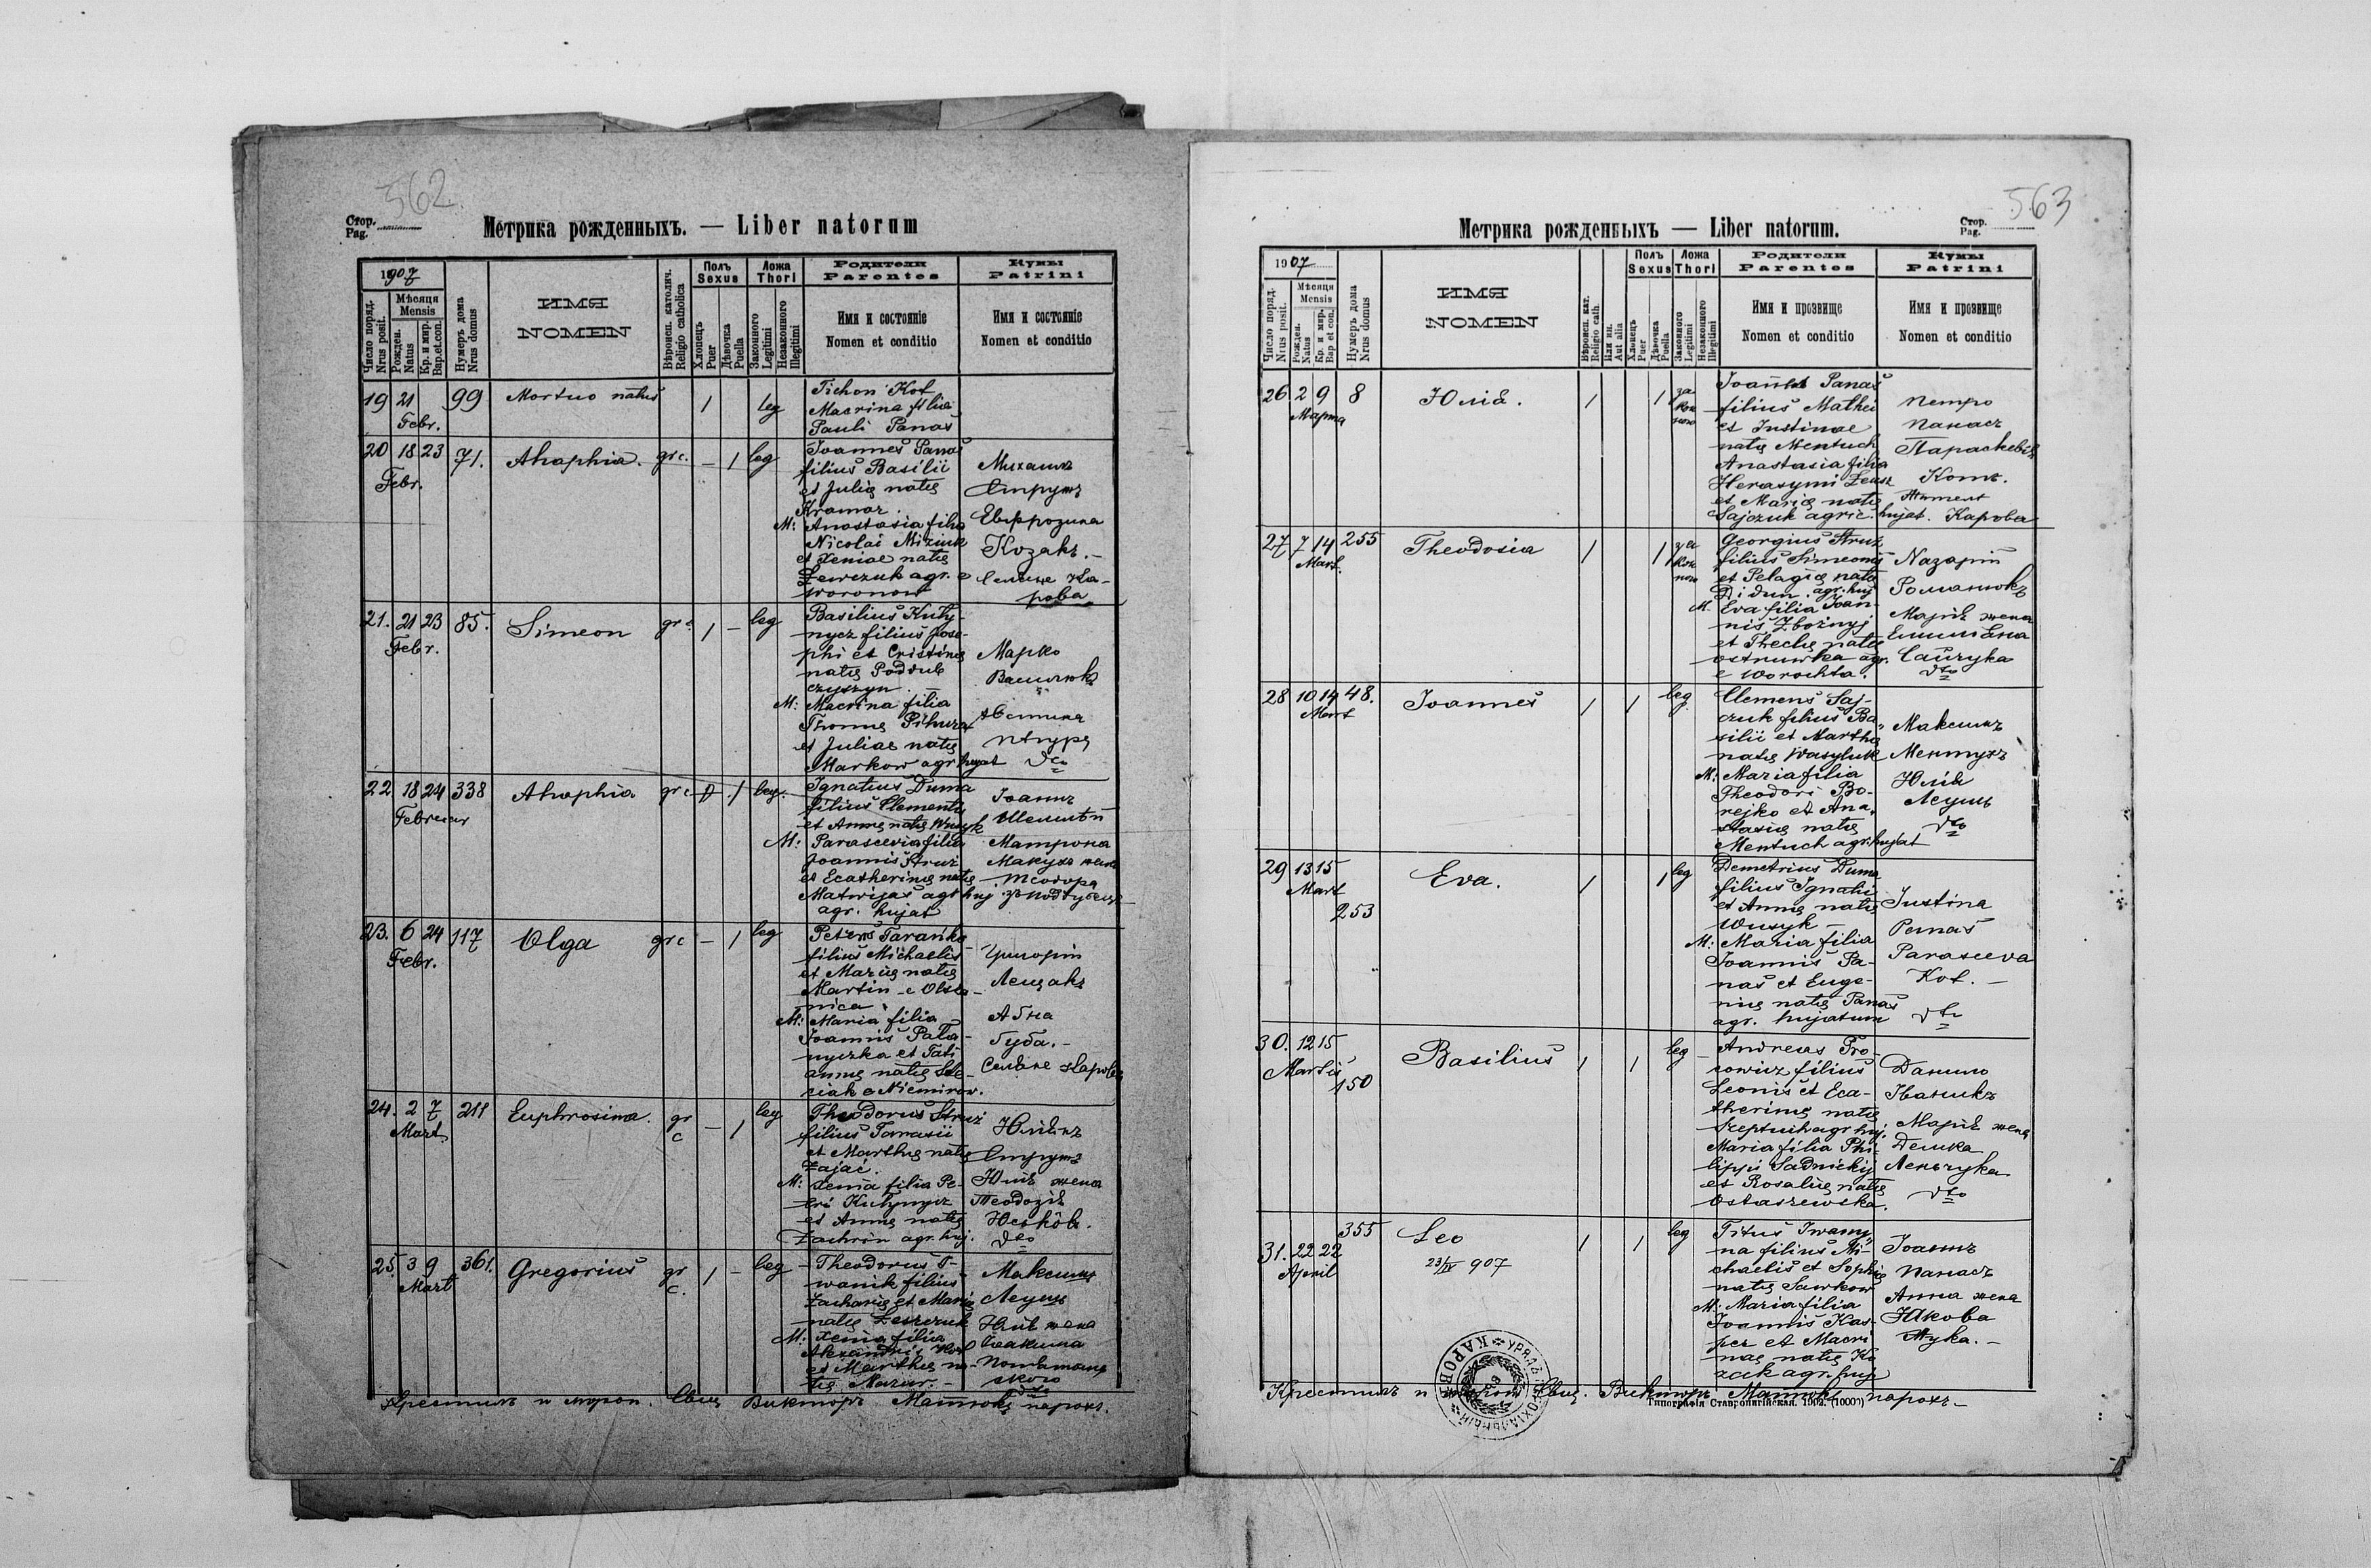 562.
Стор.
Pag.
Метрика рожденныхъ. — Liber natorum
1907
Число поряд.
Nrus posit.
Мѣсяця
Mensis
Рожден.
Natus
Кр. и мир.
Bap.et.con.
Нумеръ дома
Nrus domus
ИМЯ
NOMEN
Вѣроисп. католич.
Religio catholica
Полъ
Sexus
Хлопецъ
Puer
Дѣвочка
Puella
Ложа
Thori
Законного
Legitimi
Незаконного
Illegitimi
Родители
Parentes
Имя и состояніе
Nomen et conditio
Кумы
Patrini
Имя и состояніе
Nomen et conditio
19 21 99 Mortuo natus 1 leg
Febr.
Tichon Kot
Macrina filia
Pauli Panas
20 18 23 71. Ahaphia. gr c. — 1 leg
Febr.
Joannes Panas
filius Basilii
et Julię natę
Kramar.
M: Anastasia filia
Nicolai Miziuk
et Xeniae natę
Lewczuk agr. e
Woronow
Михаилъ
Струтъ
Евфрозина
Козакъ. —
21. 21 23 85. Simeon gr c 1 — leg
Febr.
Basilius Kuty-
nycz filius Jose-
phi et Cristinę
natę Poddub
czyszyn.
M: Macrina filia
Thomę Pihura
et Juliae natę
Markow agr hujat
Марко
Василюкъ
dto
22 18 24 338 Ahaphia gr c 1 leg.
Februar
Ignatius Duma
filius Clementis
et Annę natę Wusyk
M: Parascevia filia
Joannis Struż
et Ecatherinę natę
Matwijas agr huj
agr. hujat
Іоаннъ
Матрона
Макухъ жена
Теодора
23. 6 24 117 Olga gr c — 1 leg
Febr.
Petrus Taranko
filius Michaelis
et Marię natę
Martin e Olsza-
nica
M: Maria filia
Joannis Pała-
nyczka et Tati
annę natę
ciak e Niemirow.
Григорій
Лещакъ
Анна
Губа. —
24. 2 7 211 Euphrosina. gr c — 1 leg
Mart
Theodorus Struż
filius Tarasii
et Marthę natę
Zając.
M: Xenia filia Pe-
tri Kutynycz
et Annę natę
Zachrin agr. huj.
Юліанъ
Струтъ
Юлія жена
Теодозія
dto
25. 3 9 361. Gregorius gr c. 1 — leg
Mart
Theodorus I-
wanik filius
Zacharię et Marię
natę Leszczuk
M: Xenia filia
Alexandri Kot
et Marthę na-
tę Mazur. —
Максимъ
Леущъ
Юлія жена
Іоакима
dto
Крестилъ и миров. Свящ Викторъ Матюкъ парохъ.
563
Стор.
Pag.
Метрика рожденныхъ — Liber natorum.
1907
Число поряд.
Nrus posit.
Мѣсяця
Mensis
Рожден.
Natus
Кр. и мир.
Bap et con.
Нумеръ дома
Nrus domus
ИМЯ
NOMEN
Вѣроисп. кат.
Religio cath.
Или ин.
Aut alia
Полъ
Sexus
Хлопецъ
Puer
Дѣвочка
Puella
Ложа
Thori
Законного
Legitimi
Незаконного
Illegitimi
Родители
Parentes
Имя и прозвище
Nomen et conditio
Кумы
Patrini
Имя и прозвище
Nomen et conditio
26 2 9 8 Юлія. 1 1 законно
Марта
Joannes Panas
filius Mathei
et Justinae
natę Mentuch
Anastasia filia
Herasymi
et Marię natę
Sajczuk agric. hujat.
Петро
Панасъ
Параскевія
Котъ.
Карова
27 7 14 255 Theodosia 1 1 законно
Mart.
Georgius Struż
filius Simeonis
et Pelagię natę
Didun. agr. huj
M. Eva filia Joan-
nis Zbożnyj
et Theclę natę
Ostruwka agr.
e Worochta.
Назарій
Романюкъ
Марія жена
dto
28 10 14 48. Joannes 1 1 leg
Mart
Clemens Saj-
czuk filius Ba-
silii et Marthę
natę Wasyluk
M: Maria filia
Theodori Bo-
rejko et Ana-
stasię natę
Mentuch agr. hujat
Максимъ
Ментухъ
Юлія
Леущъ
dto
29 13 15 Eva. 1 1 leg
Mart
253
Demetrius Duma
filius Ignatii
et Annę natę
Wusyk —
M: Maria filia
Joannis Pa-
nas et Euge-
nię natę Panas
agr. hujatum
Justina
Panas
Parasceva
Kot. —
dto
30. 12 15 Basilius 1 1 leg
Martii
150
Andreas Pro-
cowicz filius
Leonis et Eca-
therinę natę
Szeptuch agr huj.
Maria filia Phi-
lippi Sadnickij
et Rosalię natę
Ostaszewska.
Данило
Иваникъ
Марія жена
dto
355 Leo 1 1 leg
31. 22 22
April
23/IV 907
Titus Iwany-
na filius Mi-
chaelis et Sophię
natę Sawkow
M: Maria filia
Joannis Kas-
per et Macri
nae natę Ko
zak agr. huj
Іоаннъ
Панасъ
Анна жена
Якова
Крестилъ и миров. Свящ. Викторъ Матюкъ парохъ —
Типографія Ставропигійская. 1902. (1000)